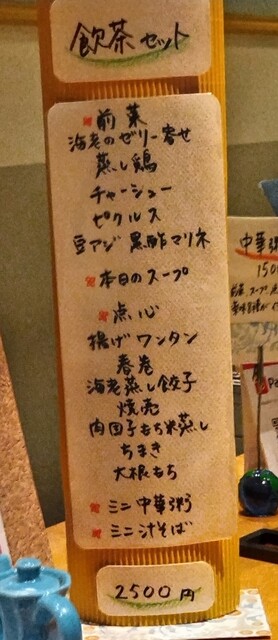 飲茶セット
前菜
海老のゼリー寄せ
蒸し鶏
チャーシュー
ピクルス
豆アジ 黒酢マリネ
本日のスープ
点心
揚げワンタン
春巻
海老蒸し餃子
焼売
肉団子もち米蒸し
ちまき
大根もち
ミニ中華粥
ミニ汁そば
2500円
中華粥
1500
前菜 スープ